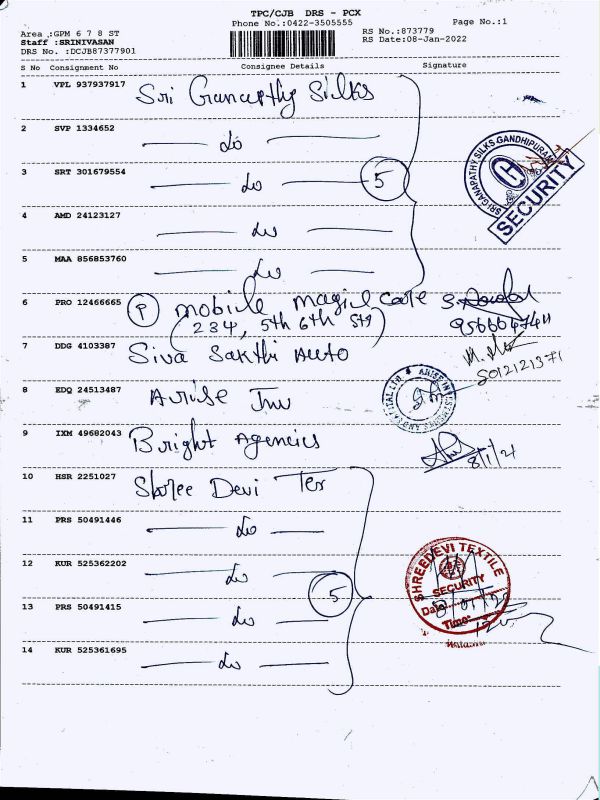 TPC/CJB DRS - PCX
Phone No.:0422-3505555
Page No.:1
Area :GPM 6 7 8 ST
Staff :SRINIVASAN
DRS No. :DCJB87377901
RS No.:873779
RS Date:08-Jan-2022
S No Consignment No Consignee Details Signature
1 VPL 937937917 Sri Ganapthy Silks
2 SVP 1334652 Do
3 SRT 301679554 Do 5
SRI GANAPATHY SILKS GANDHIPURAM
SECURITY
4 AMD 24123127 Do
5 MAA 856853760 Do
6 PRO 12466665 mobile magic care
(234, 5th 6th St)
7 DDG 4103387 Siva Sakthi Auto
8 EDQ 24513487 Arise Inv
9 IXM 49682043 Bright Agencies 8/1/21
10 HSR 2251027 Shree Devi Tex
11 PRS 50491446 Do
12 KUR 525362202 Do 5
SHREEDEVI TEXTILE
SECURITY
Date:
Time:
13 PRS 50491415 Do
14 KUR 525361695 Do